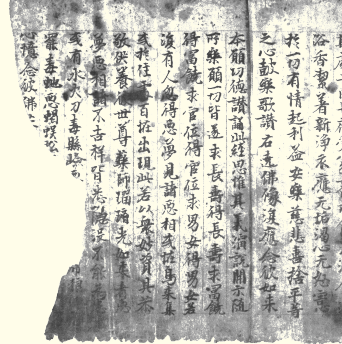 浴香潔著新淨衣應生无垢濁心无怒害
於一切有情起利益安樂慈悲喜捨平等
之心鼓樂歌讚右遶佛像復應念彼如來
本願功德讀誦此經思惟其義演說開示隨
所樂願一切皆遂求長壽得長壽求富饒
得富饒求官位得官位求男女得男女若
復有人忽得惡夢見諸惡相或怪鳥來集
或於住處百怪出現此若以眾妙資具恭
敬供養彼世尊藥師瑠璃光如來者惡
夢惡相諸不吉祥皆悉隱沒不能為
或有水火刀毒懸嶮
羆毒蛇惡蝎蜈蚣
心憶念彼佛